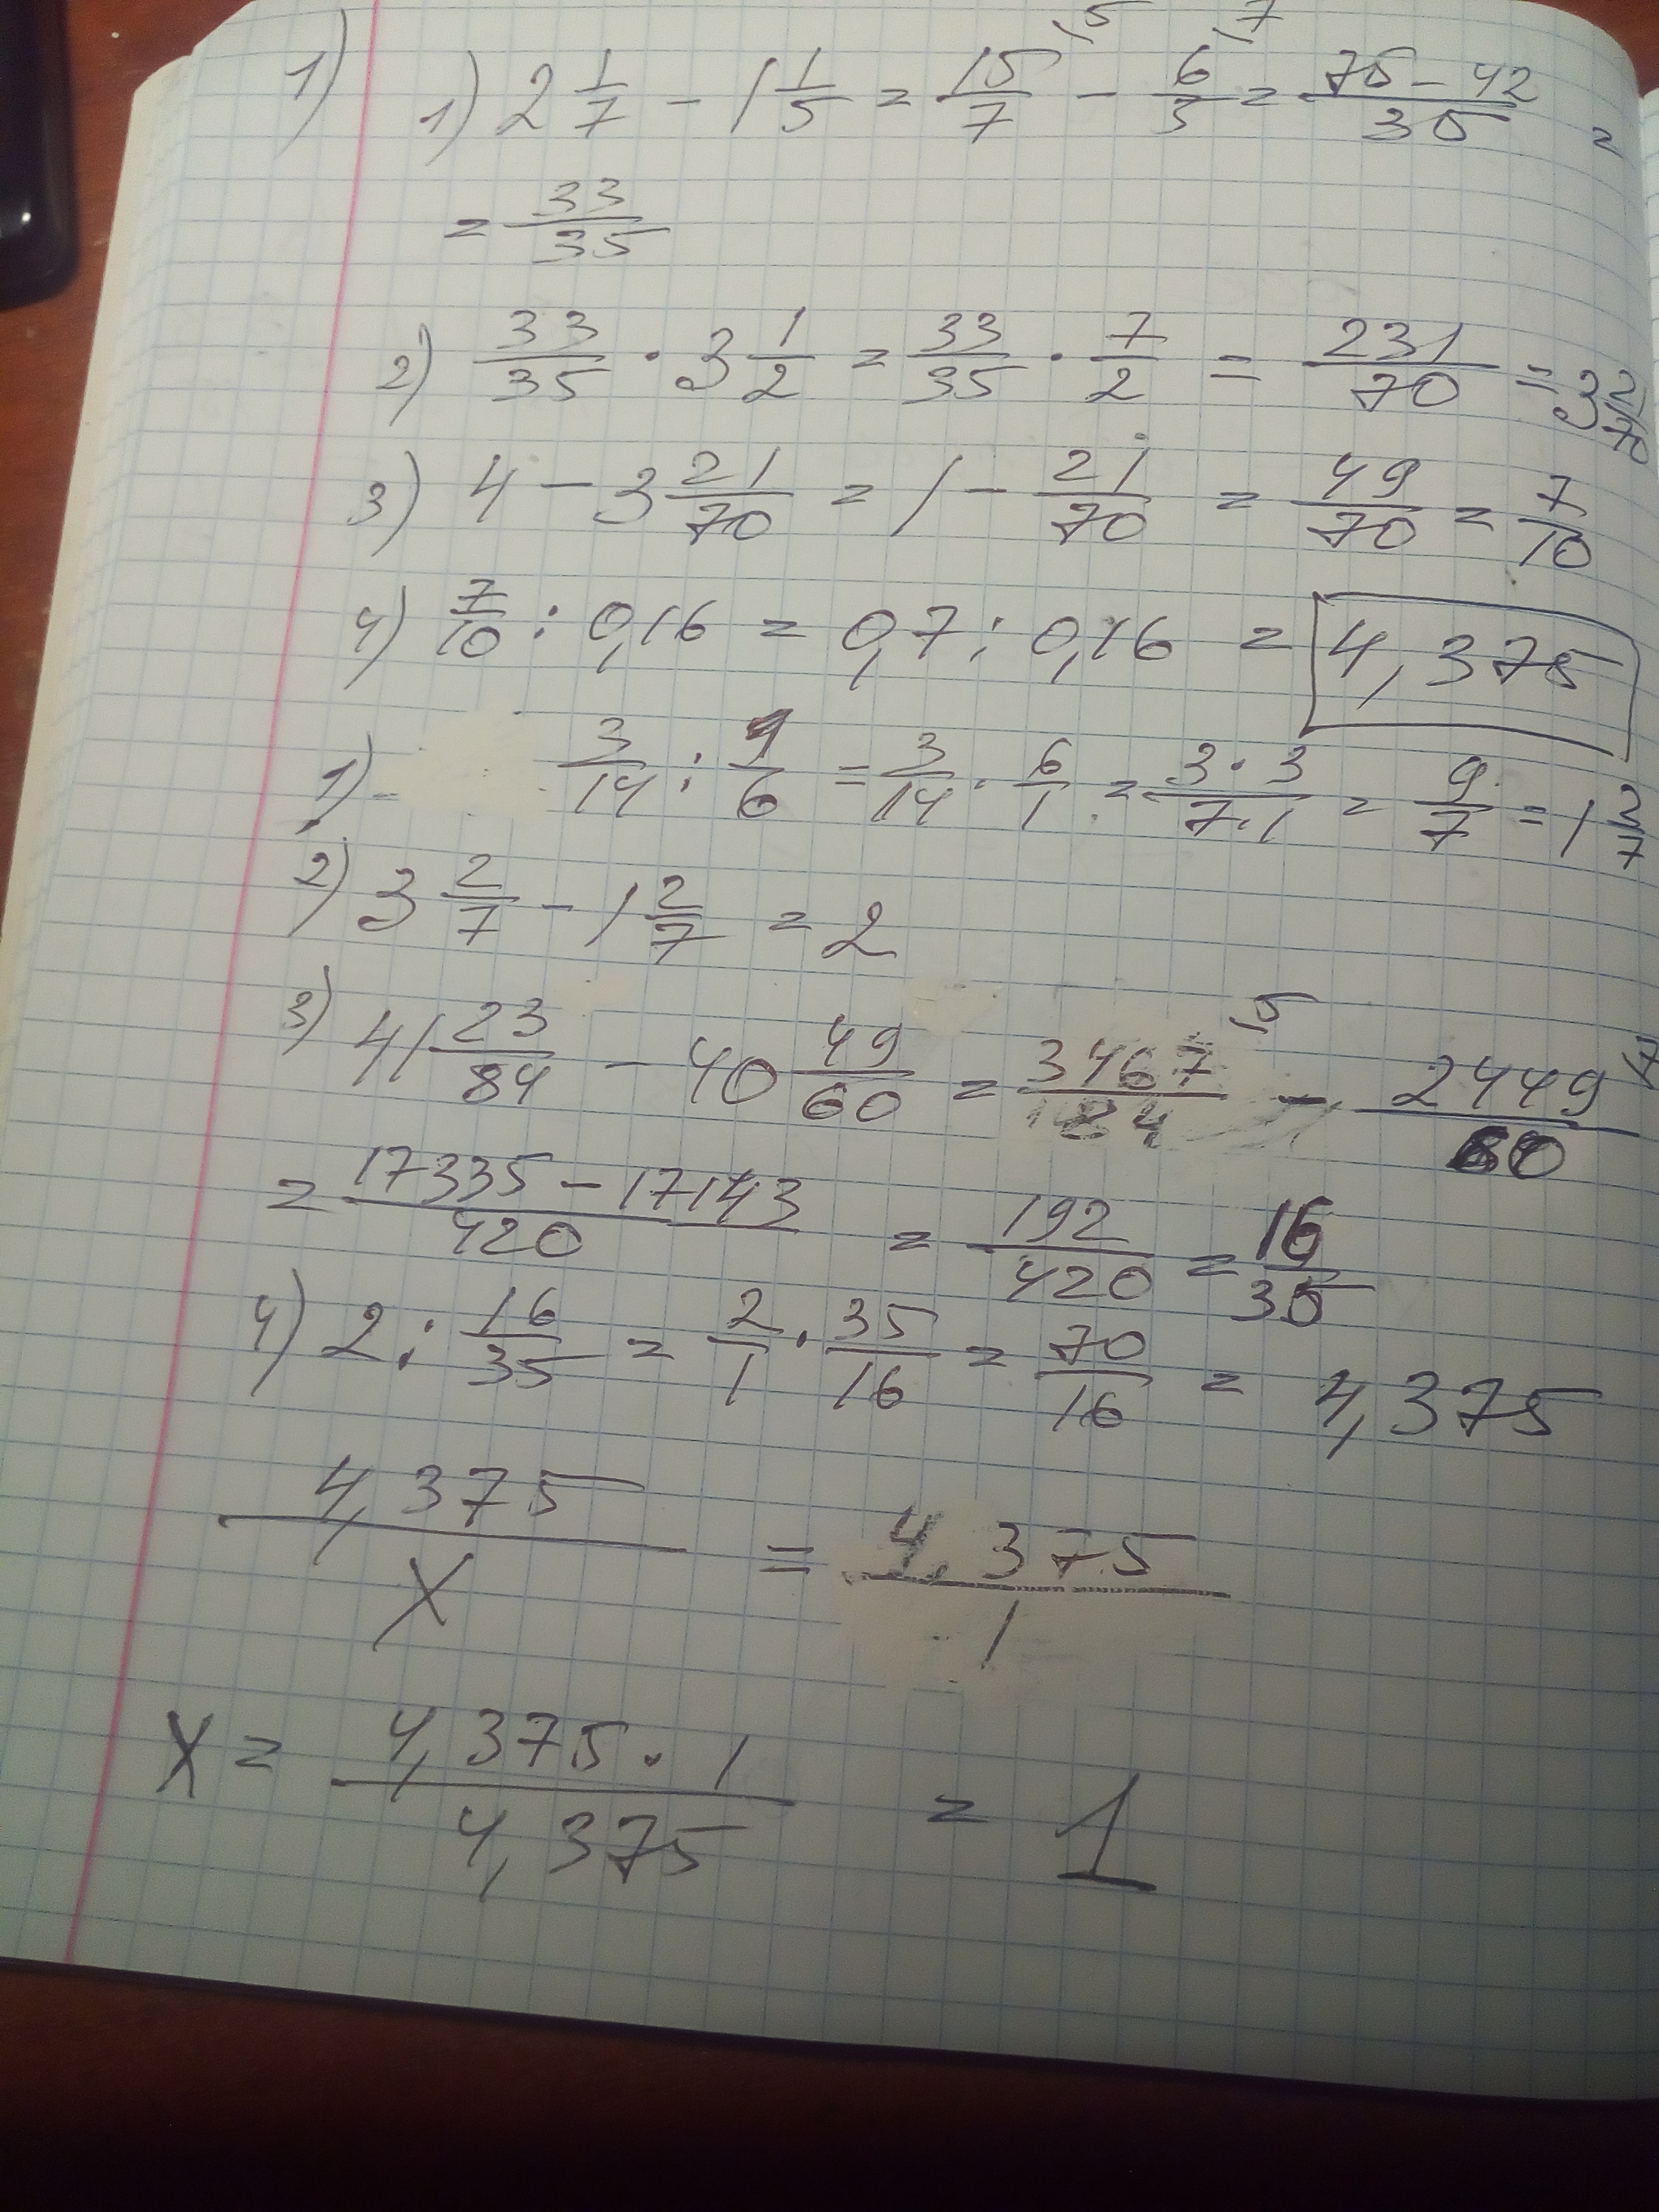 1) 1) 2 1/7 - 1 1/5 = 15/7 \5 - 6/5 \7 = 75-42/35 =
= 33/35
2) 33/35 · 3 1/2 = 33/35 · 7/2 = 231/70 = 3 21/70
3) 4 - 3 21/70 = 1 - 21/70 = 49/70 = 7/10
4) 7/10 : 0,16 = 0,7 : 0,16 = 4,375
1) 3/14 : 1/6 = 3/14 · 6/1 = 3·3/7·1 = 9/7 = 1 2/7
2) 3 2/7 - 1 2/7 = 2
3) 41 23/84 - 40 49/60 = 3467/84 \5 - 2449/60 \7
= 17335-17143/420 = 192/420 = 16/35
4) 2 : 16/35 = 2/1 · 35/16 = 70/16 = 4,375
4,375/X = 4,375/1
X = 4,375·1/4,375 = 1